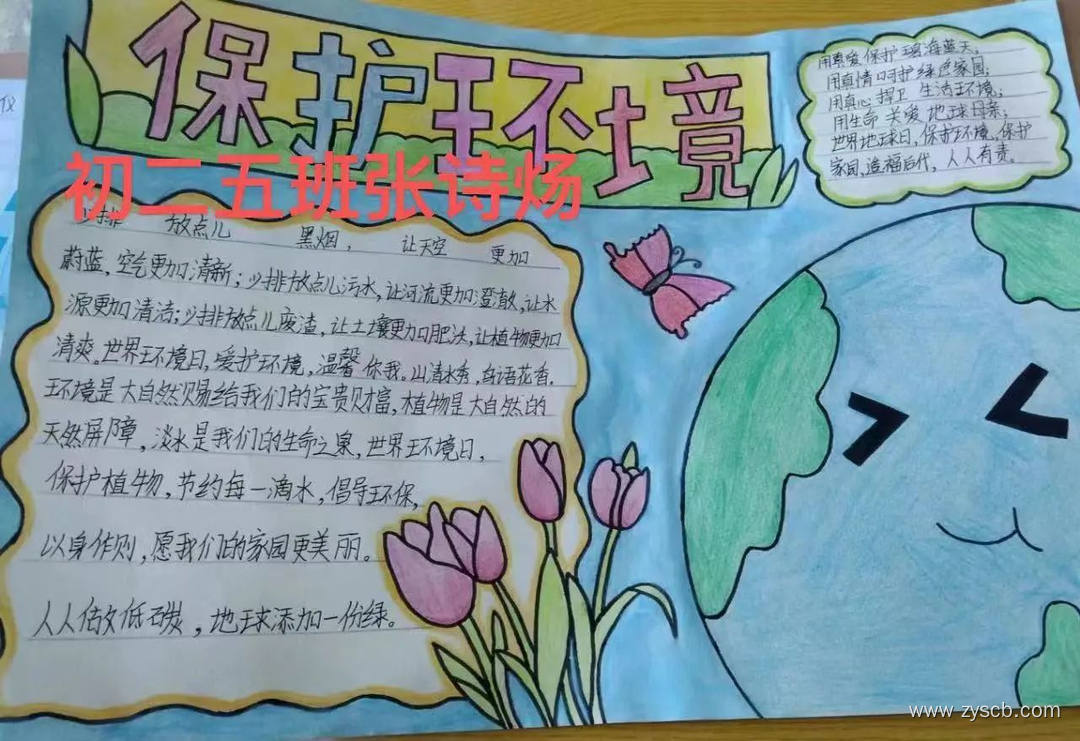 保护环境
初二五班张诗炀
用真爱保护碧海蓝天;
用真情呵护绿色家园;
用真心捍卫 生活环境;
用生命 关爱 地球母亲;
世界地球日,保护环境,保护
家园,造福后代,人人有责。
排 放点儿 黑烟, 让天空 更加
蔚蓝,空气更加清新;少排放点儿污水,让河流更加澄澈,让水
源更加清洁;少排放点儿废渣,让土壤更加肥沃,让植物更加
清爽。世界环境日,爱护环境,温馨你我。山清水秀,鸟语花香,
环境是大自然赐给我们的宝贵财富,植物是大自然的
天然屏障,淡水是我们的生命之泉,世界环境日,
保护植物,节约每一滴水,倡导环保,
以身作则,愿我们的家园更美丽。
人人做低碳,地球添加一份绿。
www.zyscb.com